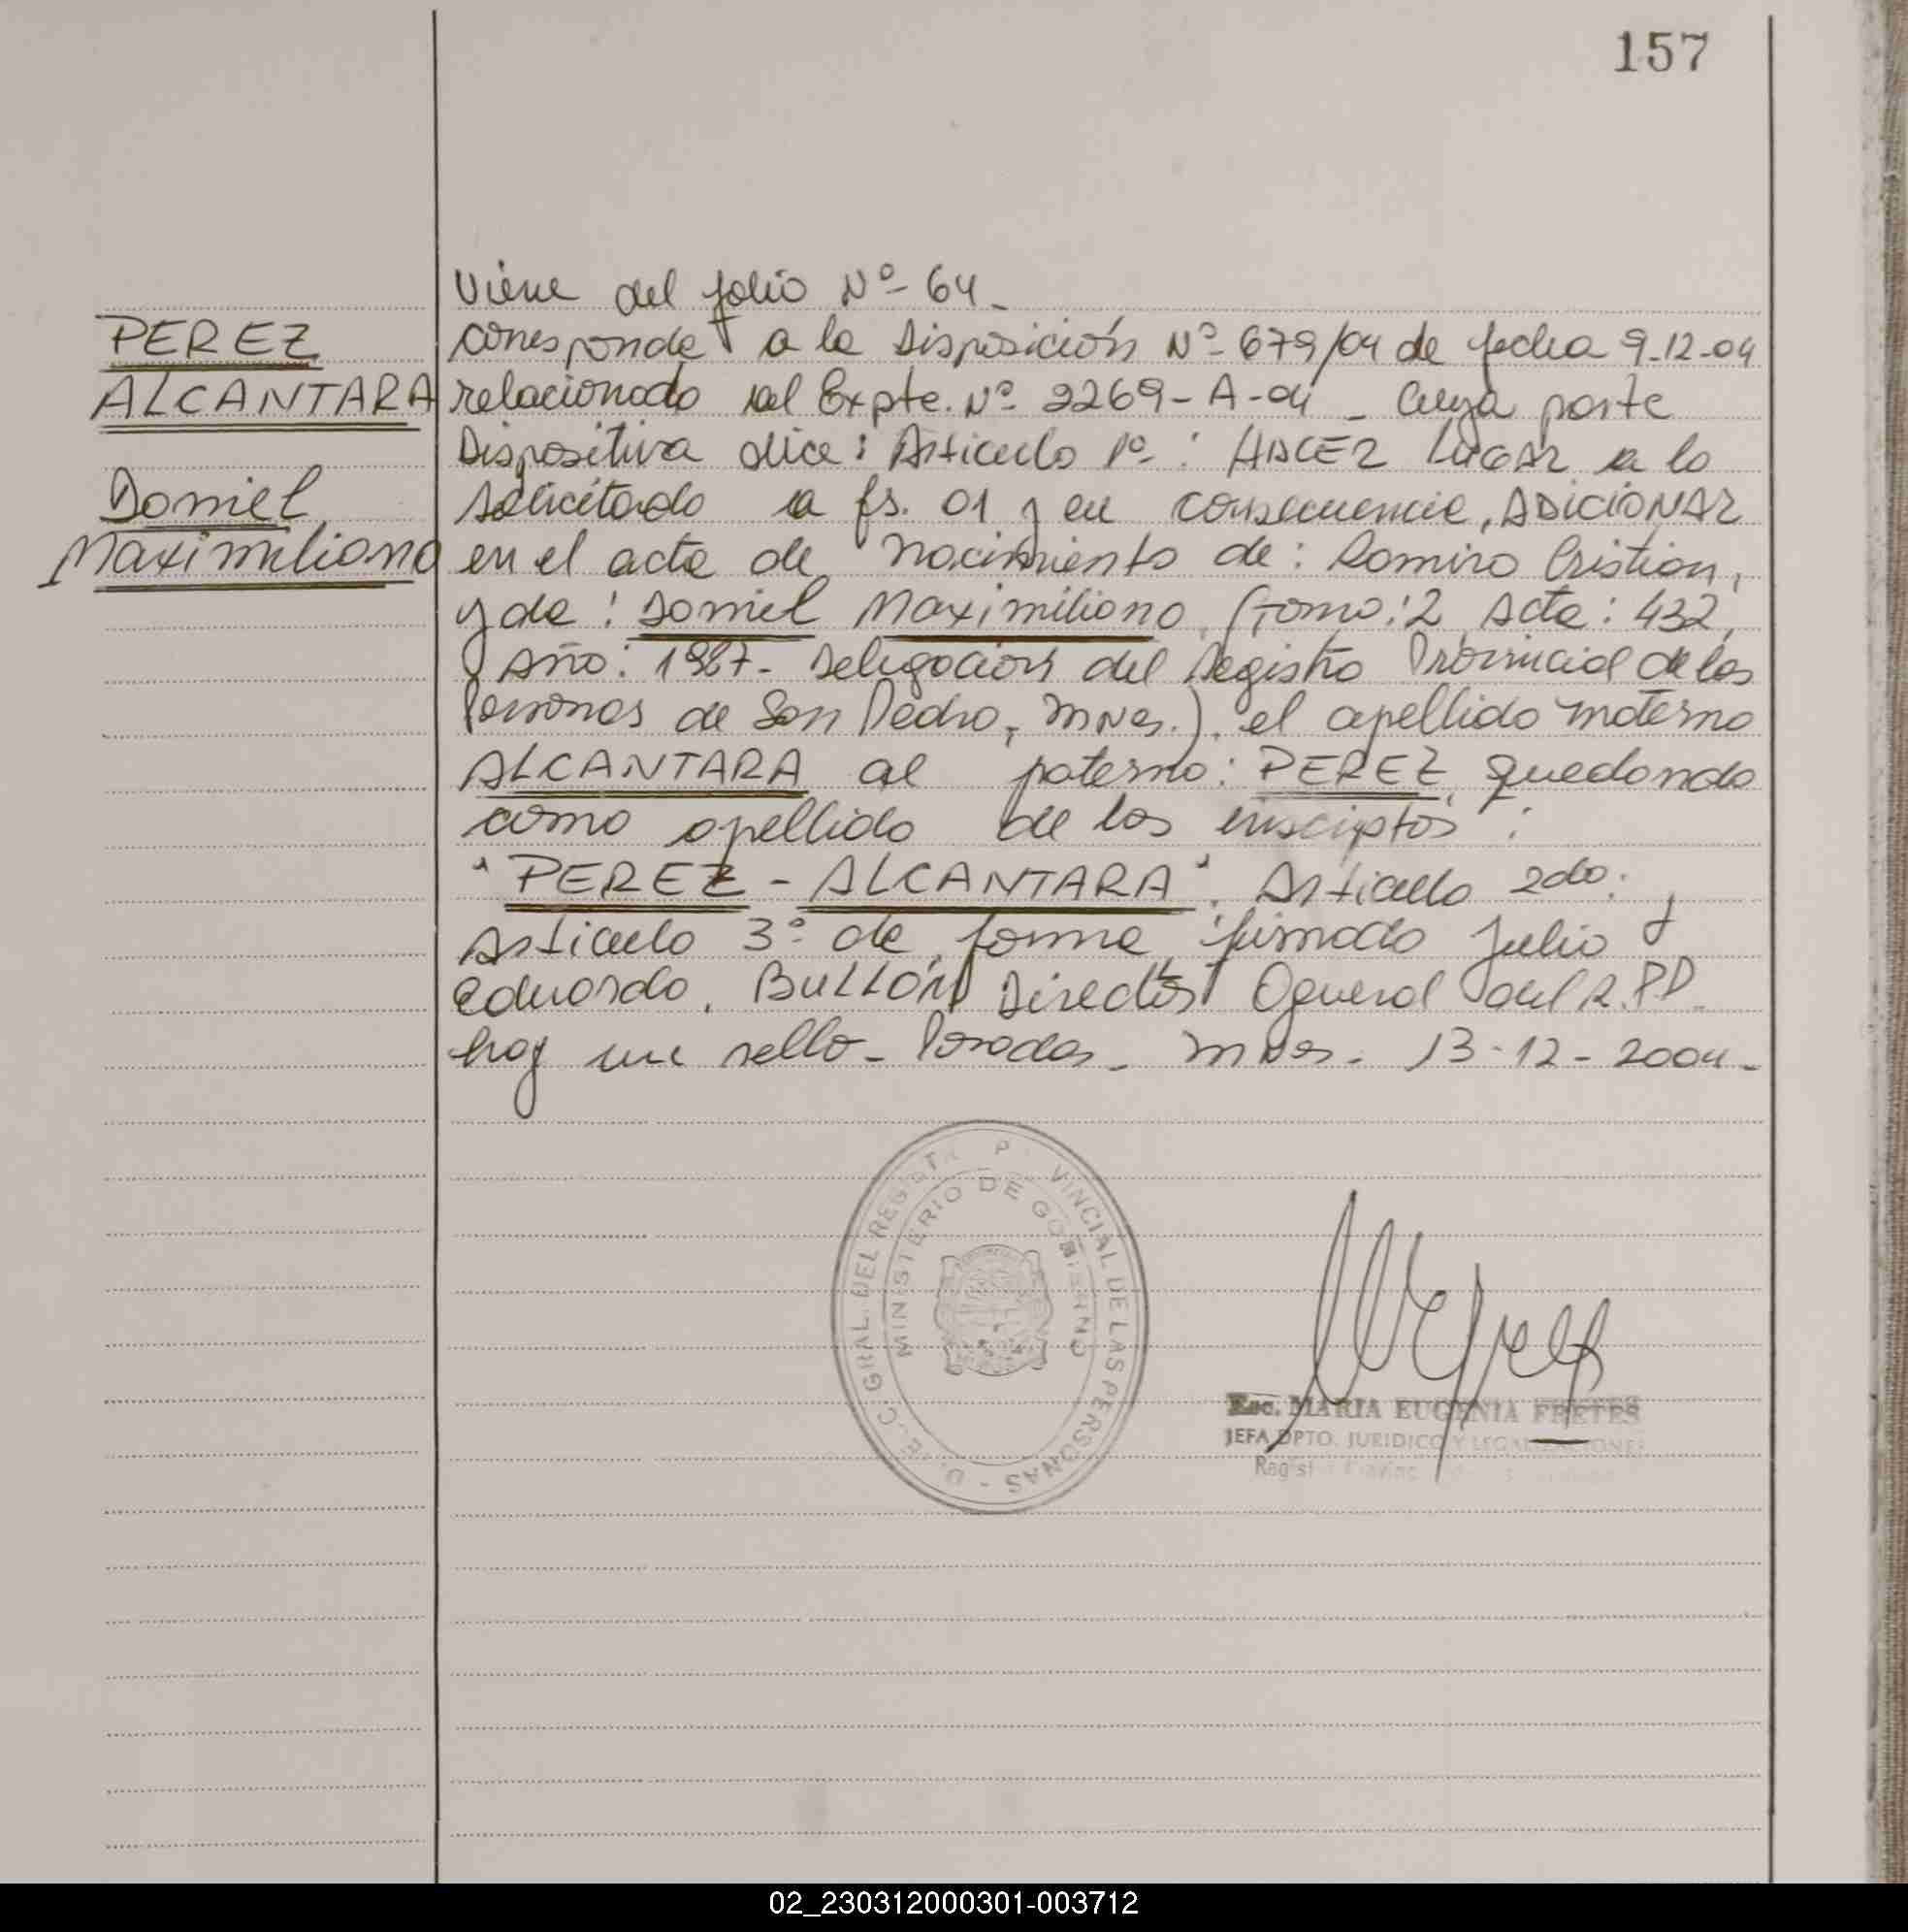 157
Viene del folio Nº 64_
PEREZ
ALCANTARA
Daniel
Maximiliano
corresponde a la Disposición Nº 679/04 de fecha 9-12-04
relacionado al Expte. Nº 2269-A-04_ Cuya parte
Dispositiva dice: Articulo 1º: HACER LUGAR a lo
solicitado a fs. 01 y en consecuencia, ADICIONAR
en el acta de nacimiento de: Ramiro Cristian,
y de: Daniel Maximiliano, (Tomo: 2, Acta: 432,
Año: 1987- Delegación del Registro Provincial de las
Personas de San Pedro, Mnes.), el apellido materno
ALCANTARA al paterno: PEREZ, quedando
como apellido de los inscriptos:
"PEREZ-ALCANTARA". Articulo 2do: y
Articulo 3º de forma, firmado Julio
Eduardo. BULLÓN Director General del R.P.P.
hay un sello_ Posadas_ Mnes. 13-12-2004_
D.E.C. GRAL. DEL REGISTR P VINCIAL DE LAS PERSONAS -
MINISTERIO DE GOBIERNO
Esc. MARIA EUGENIA FRETES
JEFA DPTO. JURIDICO Y LEGALIZACIONES
02_230312000301-003712